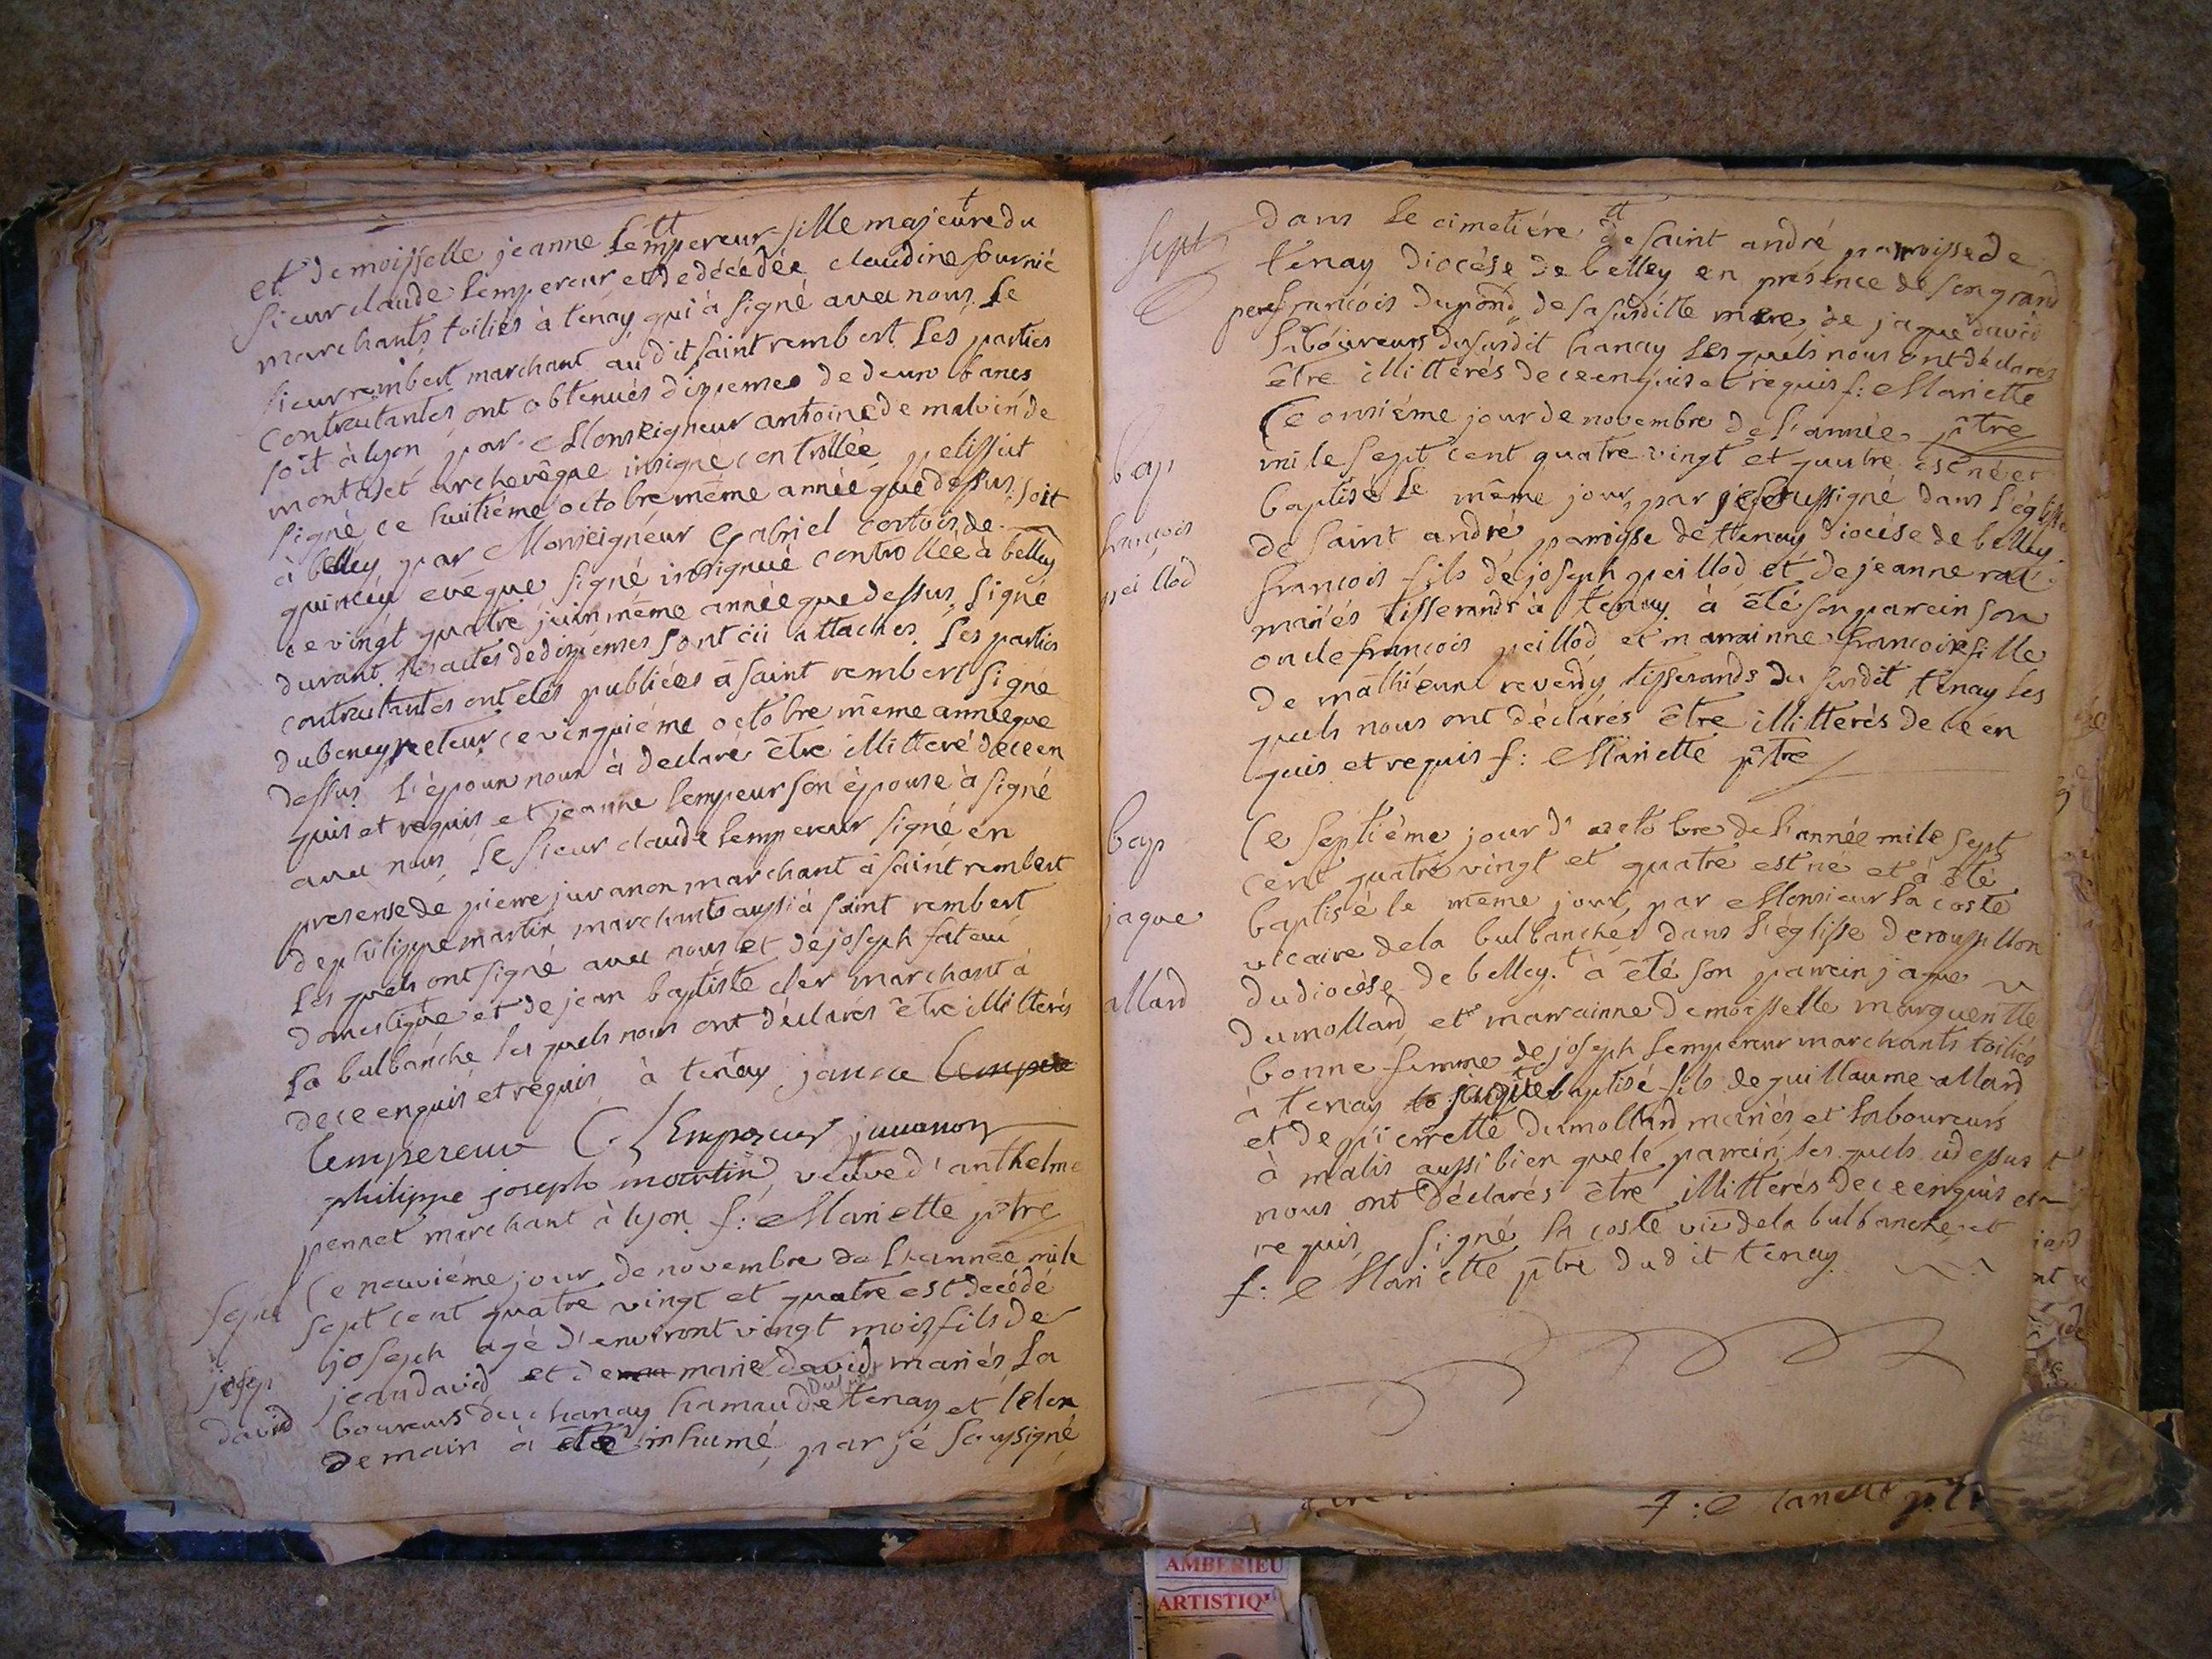 et demoisselle jeanne Lempereur fille majeure du
sieur claude Lempereur et de décédée claudine fournié
marchants toiliés à ténay qui à signé avec nous. Le
sieur rembert marchant au dit saint rembert Les parties
contractantes ont obtenués dispemes de deux bancs
soit à lyon par Monseigneur antoine de malvin de
montaset archevêque insigné controllée pelissiut
signé ce huitiéme octobre même année que dessus. soit
à belley par Monseigneur Gabriel cortois de
quincey eveque signé insignué controllée à belley
ce vingt quatre juin même année que dessus. signé
durant. Les actes de dispémes sont cii attachés. Les parties
contractantes ont étés publiées à saint rembert signé
dubeney recteur ce vinguiéme octobre même année que
dessus. L'époux nous à declaré être illitteré de ce en
quis et requis et jeanne Lempeur son épouse à signé
avec nous, Le sieur claude Lempereur signé en
presense de pierre juvanon marchant à saint rembert
de philippe martin marchants aussi à saint rembert
Les quels ont signé avec nous et de joseph
domestique et de jean baptiste cler marchant à
La balbanche les quels nous ont déclarés être illitterés
de ce enquis et requis à tenay janne Lempere
Lempereur C. LEmpereur juvanon
philippe joseph martin, veuve d'anthelme
pennet marchant à lyon f: Mariette ptre
sepul Ce neuviéme jour de novembre de L'année mile
sept cent quatre vingt et quatre est decédé
joseph agé d'environt vingt mois fils de
josep jean david et de marie david mariés La
david boureurs du chanay hamaude tenay et Lelen
demain à été inhumé par jé soussigné
sept dans Le cimetiére de saint andré paroisse de
tenay Diocése de belley en présence de son grand
pere francois dupond, de sa susditte mere, de jaque david
Laboureurs du susdit hanay Les quels nous ont déclarés
être illittérés de ce enquis et requis f: Mariette
Ce onsiéme jour de novembre de L'année ptre
bap mile sept cent quatre vingt et quatre est né et
baptisé Le même jour, par je soussigné dans L'églisse
francois de saint andré paroisse de ttenay diocése de belley
peillod francois fils de joseph peillod et de jeanne
mariés tisserands à tenay. à été son parein son
oncle francois peillod et marainne francoise fille
de mathieux reverdy, tisserands du susdit tenay Les
quels nous ont déclarés être illitterés de ce en
quis et requis f: Mariette ptre
bap Ce septiéme jour d'octobre de L'année mile sept
cent quatre vingt et quatre est né et à été
jaque baptisé le même jour, par Monsieur La coste
vicaire de la balbanche, dans L'églisse de roussillon
allard du diocèse de belley. à été son parrein jaque
dumollard et marrainne demoisselle margueritte
bonne femme de joseph Lempereur marchants toiliés
à tenay le susdit baptisé fils de guillaume allard
et de pierrette dumollard mariés et Laboureurs
à malis aussi bien que le parrein, les quels cidessus
nous ont déclarés être illitterés de ce enquis et
requis signé La coste vic de la balbanche et
f: Mariette ptre dudit tenay
AMBERIEU
ARTISTIQ